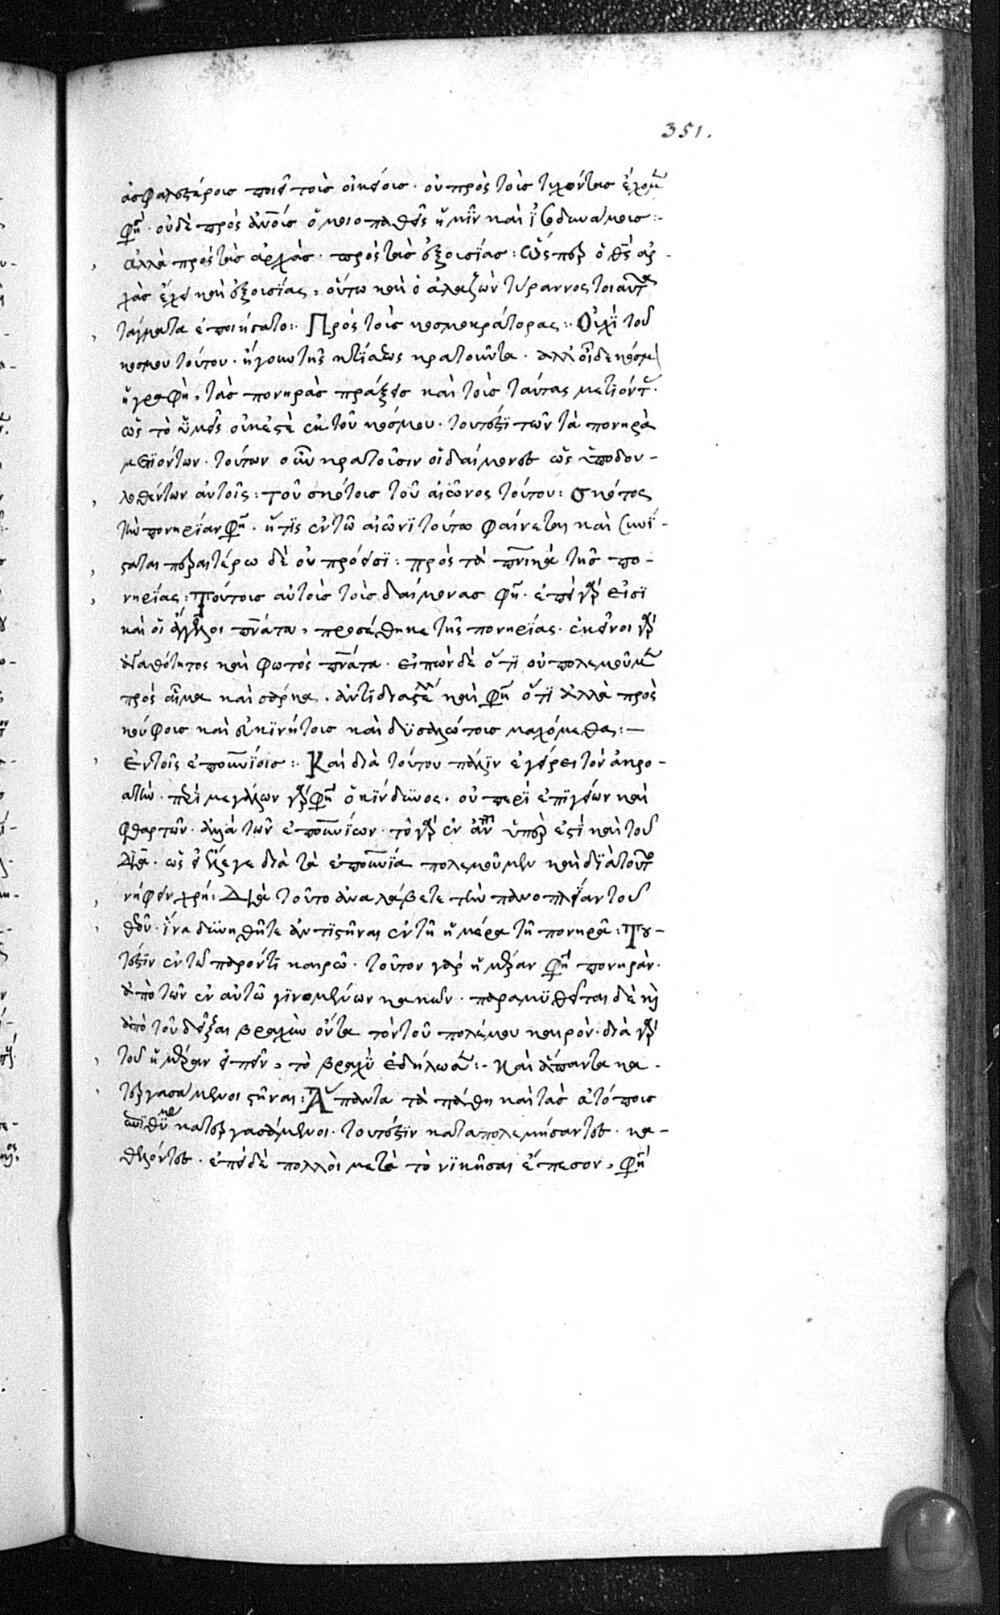 351.
ἀσφαλεστέροις ποιεῖ τοῖς οἰκείοις · οὐ πρὸς τοὺς τυχόντας ἔχομεν
φησὶ · οὐδὲ πρὸς ἀνους ὁμοιοπαθεῖς ἡμῖν καὶ ἰσοδυνάμους :-
Ἀλλὰ πρὸς τὰς ἀρχὰς · πρὸς τὰς ἐξουσίας : Ὥσπερ ὁ θς ἀρ-
χὰς ἔχει καὶ ἐξουσίας, οὕτω καὶ ὁ ἀλαζὼν τύραννος τοιαῦτα
τάγματα ἐποιήσατο :- Πρὸς τοὺς κοσμοκράτορας :- Οὐχὶ τοῦ
κόσμου τούτου · ἤγουν τῆς κτίσεως κρατοῦντα · ἀλλ οἶδε κόσμον
ἡ γραφὴ, τὰς πονηρὰς πράξεις καὶ τοὺς ταύτας μετιόντας ·
ὡς τὸ ὑμεῖς οὐκ ἐστὲ ἐκ τοῦ κόσμου · τουτέστι τῶν τὰ πονηρὰ
μετιόντων · τούτων οὖν κρατοῦσιν οἱ δαίμονες ὡς ὑποδου-
λωθέντων αὐτοῖς : τοῦ σκότους τοῦ αἰῶνος τούτου : σκότος
τὴν πονηρίαν φησὶ · ἥτις ἐν τῷ αἰῶνι τούτω φαίνεται καὶ συνί-
σταται περαιτέρω δὲ οὐ πρόεισι : πρὸς τὰ πνικὰ τῆς πο-
νηρίας : Τούτοις αὐτοὺς τοὺς δαίμονας φησὶ · ἐπεὶ γὰρ εἰσὶ
καὶ οἱ ἄγγελοι πνατα, προσέθηκε τῆς πονηρίας · ἐκεῖνοι γὰρ
ἀγαθότητος καὶ φωτὸς πνατα · εἰπὼν δὲ ὅτι οὐ πολεμοῦμεν
πρὸς αἷμα καὶ σάρκα · ἀντιδιαστέλλει καὶ φησὶ ὅτι ἀλλὰ πρὸς
κούφοις καὶ εὐκινήτοις καὶ δυσαλώτοις μαχόμεθα :—
Ἐν τοῖς ἐπουνίοις :- Καὶ διὰ τούτου πάλιν ἐγείρει τὸν ἀκρο-
ατὴν · περὶ μεγάλων γὰρ φησὶ ὁ κίνδυνος · οὐ περὶ ἐπιγείων καὶ
φθαρτῶν · ἀλλὰ τῶν ἐπουνίων · τὸ γὰρ ἐν ἀντὶ ὑπὲρ ἐστὶ καὶ τοῦ
διὰ · ὡς εἰ ἔλεγε διὰ τὰ ἐπουνια πολεμοῦμεν καὶ διὰ τοῦτο
νήφειν χρή : Διὰ τοῦτο ἀναλάβετε τὴν πανοπλίαν τοῦ
θεοῦ · ἵνα δυνηθῆτε ἀντιστῆναι ἐν τῇ ἡμέρα τῇ πονηρᾶ : Του-
τέστιν ἐν τῷ παρόντι καιρῶ · τοῦτον γὰρ ἡμέραν φησὶ πονηράν ·
ἀπὸ τῶν ἐν αὐτῶ γινομένων κακῶν · παραμυθεῖται δὲ καὶ
ἀπὸ τοῦ δεῖξαι βραχὺν ὄντα τὸν τοῦ πολέμου καιρὸν · διὰ γὰρ
τοῦ ἡμέραν εἰπεῖν, τὸ βραχὺ ἐδήλωσεν :- Καὶ ἅπαντα κα-
τεργασάμενοι στῆναι : Ἅπαντα τὰ πάθη καὶ τὰς ἀτόπους
ἐπιθυμίας κατεργασάμενοι · τουτέστιν καταπολεμήσαντες · κα-
θελόντες · ἐπεὶ δὲ πολλοὶ μετὰ τὸ νικῆσαι ἔπεσον, φησὶ